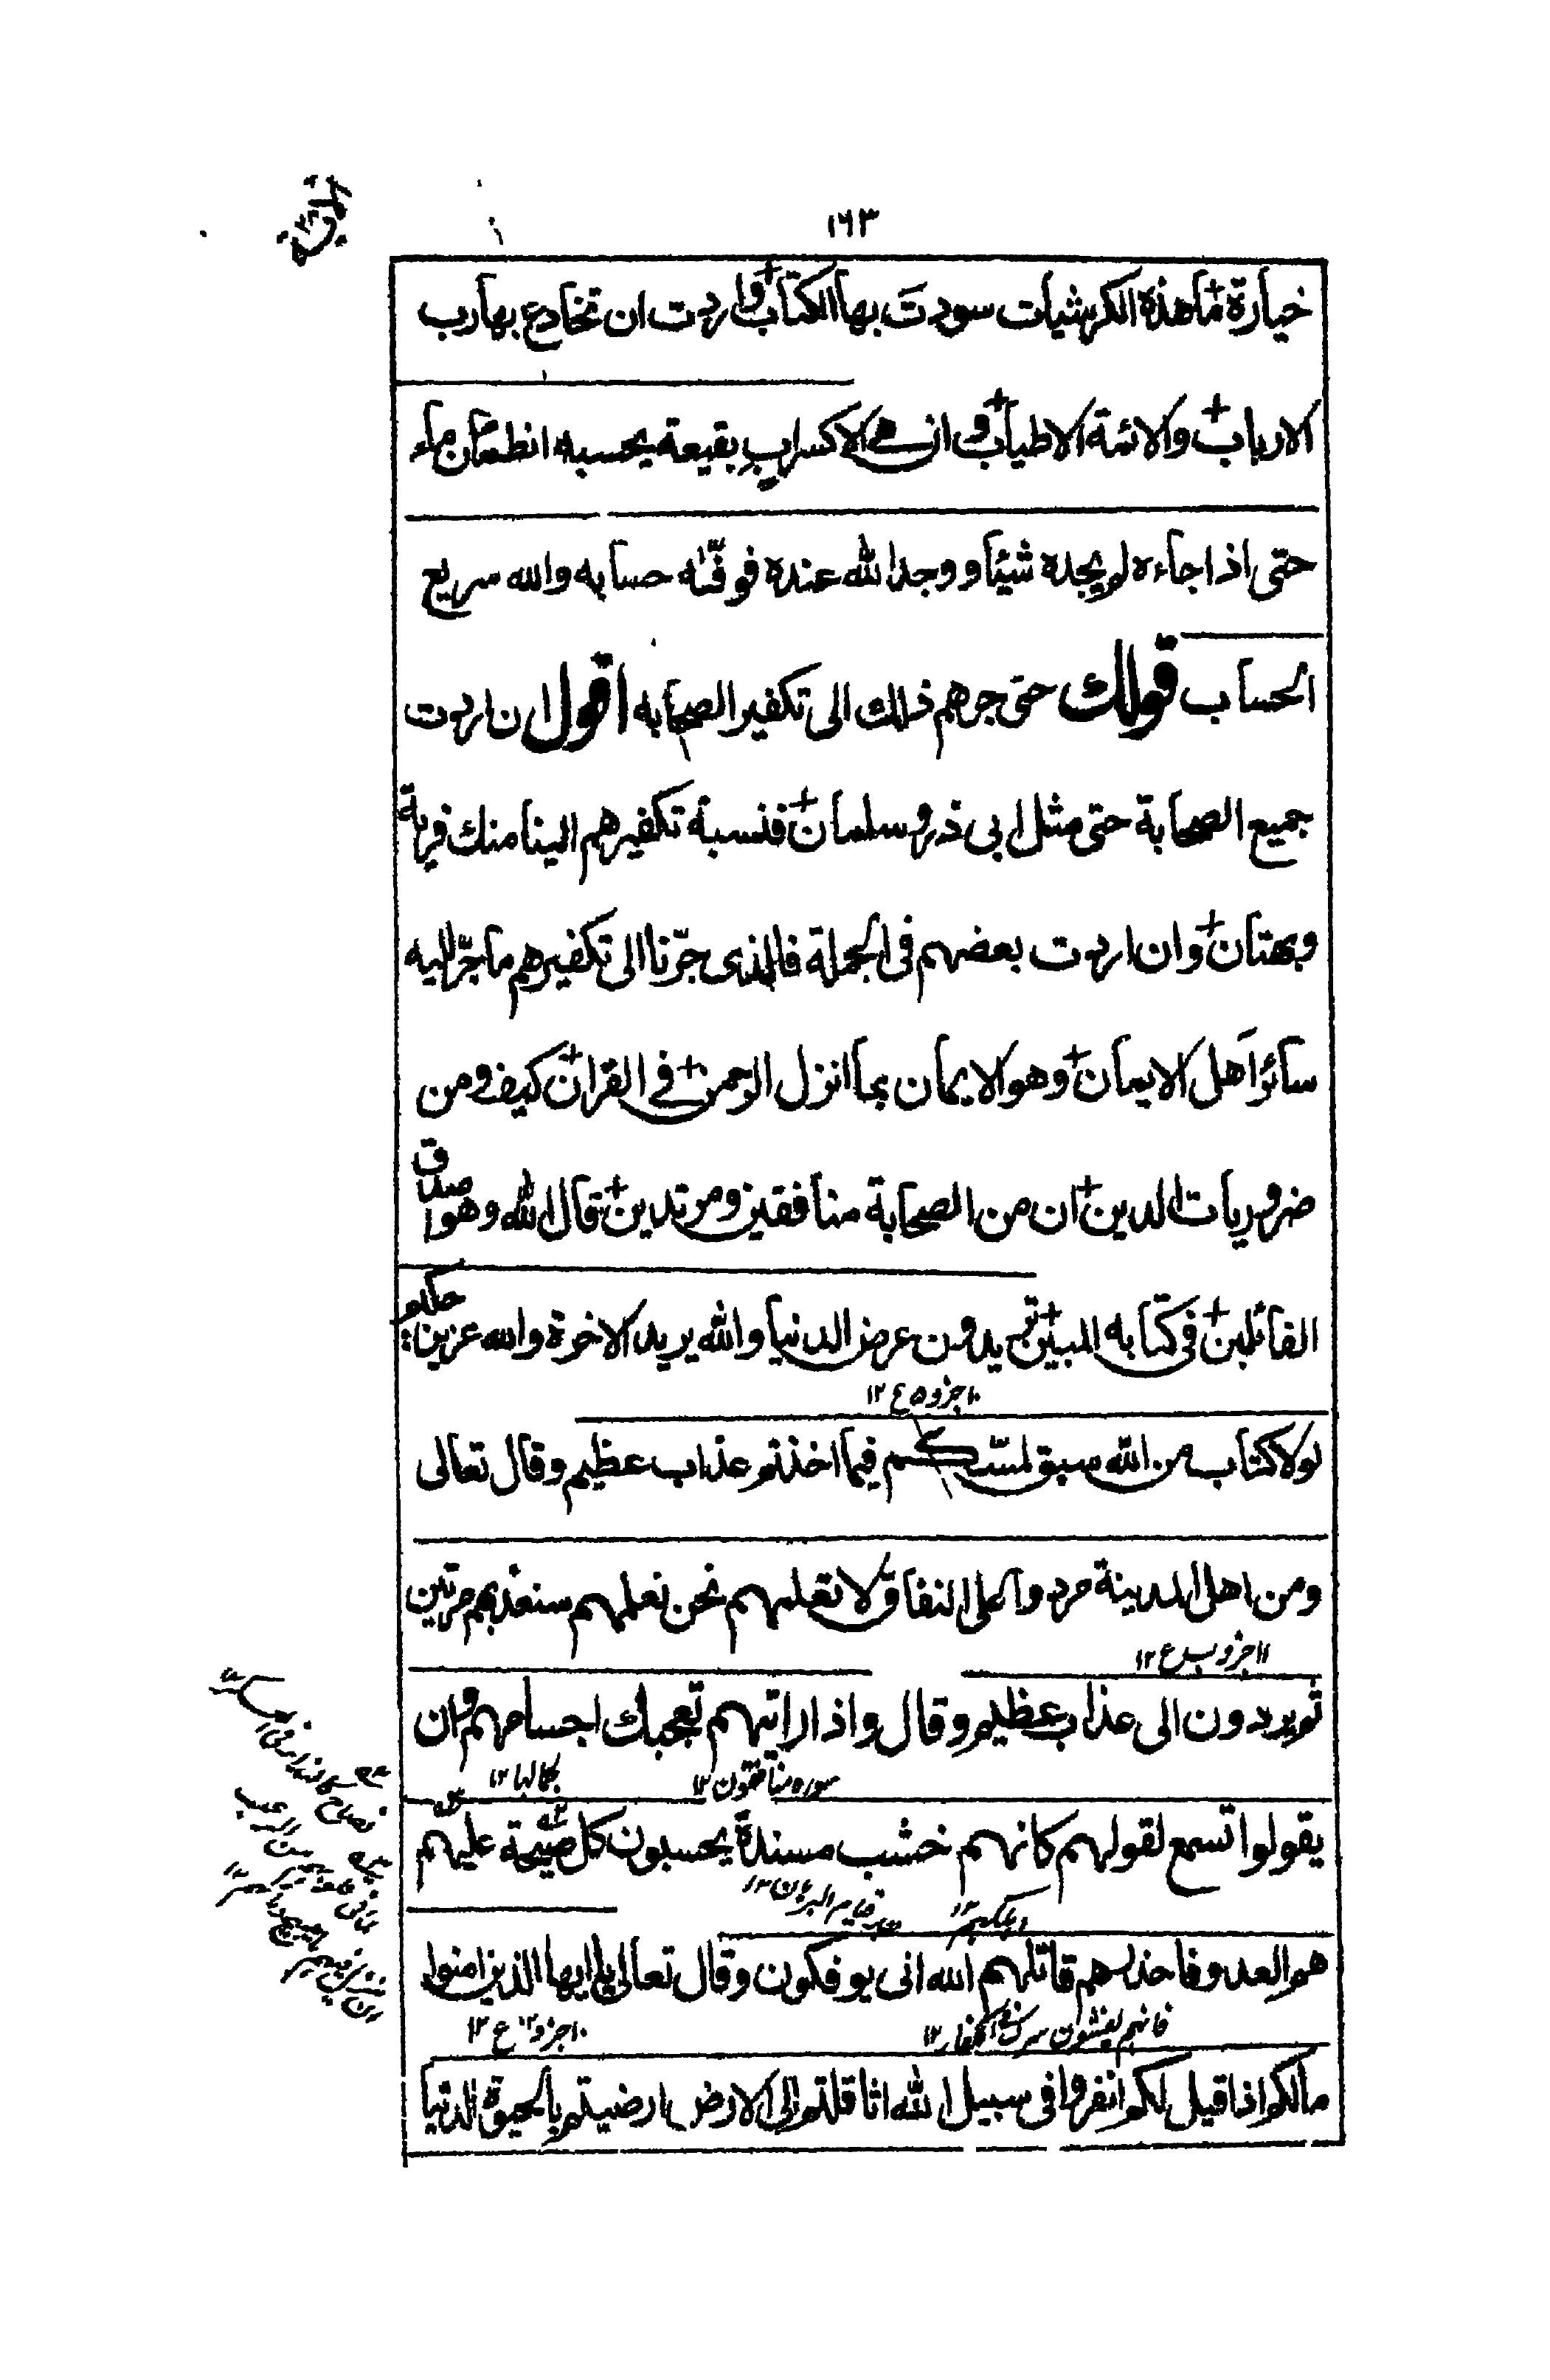 ١٦٣
خيارة ما هذه الكرشيات سودت بها الكتاب واردت ان تخادع بها رب
الارباب والائمة الاطياب وان هى الا كسراب بقيعة يحسبه الظمان ماء
حتى اذا جاءه لم يجده شيئا ووجد الله عنده فوفّٰه حسابه والله سريع
الحساب قولك حتى جرهم ذلك الى تكفير الصحابه اقول ان اردت
جميع الصحابة حتى مثل ابى ذر وسلمان فنسبة تكفيرهم الينا منك فرية
وبهتان وان اردت بعضهم فى الجملة فالذى جرّنا الى تكفيرهم ما جرّ اليه
سائر اهل الايمان وهو الايمان بما انزل الرحمن فى القران كيف ومن
ضروريات الدين ان من الصحابة منافقين ومرتدين قال الله وهو اصدق
القائلين فى كتابه المبين تريدون عرض الدنيا والله يريد الاخرة والله عزيز حكيم
١٠ جزو ٥ ع ١٢
لولا كتاب من الله سبق لمسّكم فيما اخذتم عذاب عظيم وقال تعالى
ومن اهل المدينة مردوا على النفاق لا تعلمهم نحن نعلمهم سنعذبهم مرتين
١١ جزو ع ١٢
ثم يردون الى عذاب عظيم وقال واذا رايتهم تعجبك اجسامهم وان
سوره منافقون ١٢ بجمالها ١٢
يقولوا تسمع لقولهم كانهم خشب مسندة يحسبون كل صيحة عليهم
هم العدو فاحذرهم قاتلهم الله انى يوفكون وقال تعالى يا ايها الذين امنوا
فانهم يفشون سرك الكفار ١٢ ١٠ جزو ١٢ ع ١٢
مالكم اذا قيل لكم انفروا فى سبيل الله اثاقلتم الى الارض ارضيتم بالحيوة الدنيا